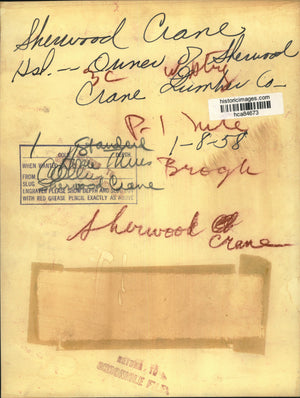 Sherwood Crane
Hsl. -- Owner of Sherwood
3C
Crane Lumber Co--
historicimages.com
hca84673
P-1
1-8-58
1 Standard
DEPTH
WHEN WANTED
FROM
SLUG
Sherwood Crane
ENGRAVER PLEASE SHOW DEPTH AND
WITH RED GREASE PENCIL EXACTLY AS ABOVE
Brogh
Sherwood
Crane
RETURN TO